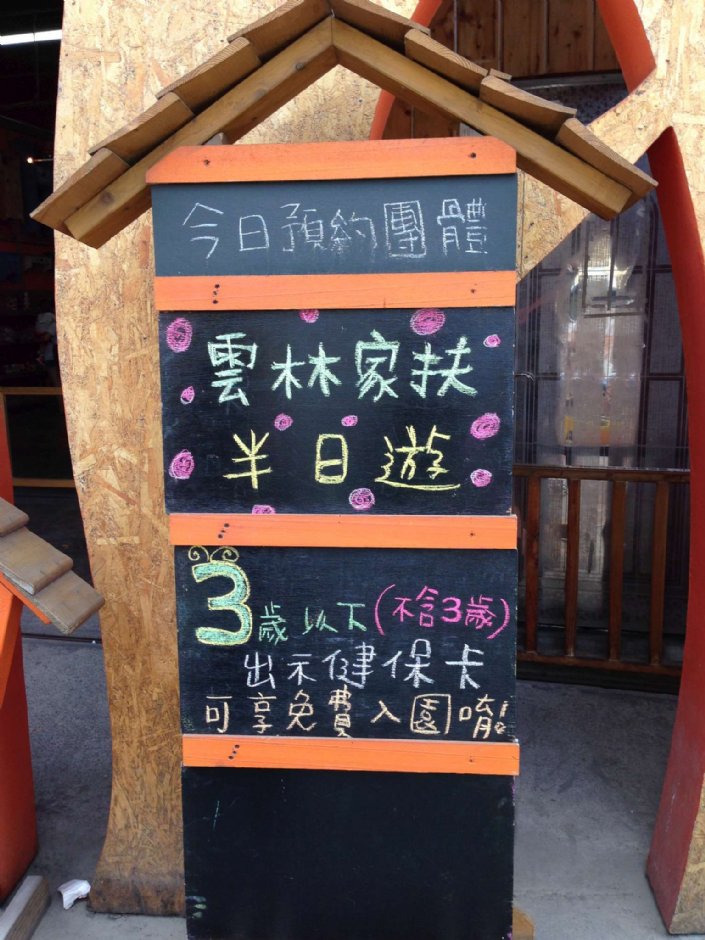 今日預約團體
雲林家扶
半日遊
3歲以下(不含3歲)
出示健保卡
可享免費入園唷!